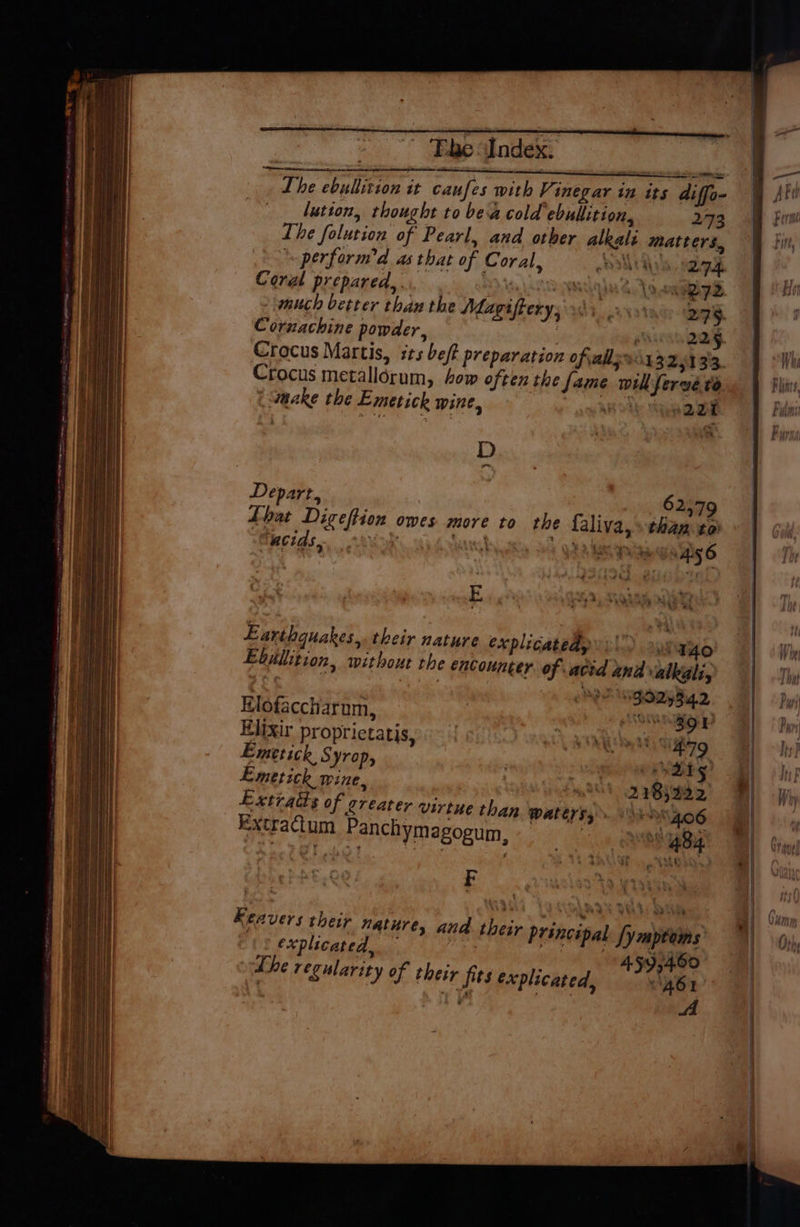 The Index.
The ebullition it cauſes with Vinegar in its diſſo-
lution, thought to be a cold ebullition, 273
The ſolution of Pearl, and other alkali matters,
perform'd as that of Coral, 274.
Coral prepared, 272.
much better than the Magiſtery, 275.
Cornachine powder, 225.
Crocus Martis, its beſt preparation of all, 132, 133.
Crocus metallorum, how often the ſame will ſerve to
make the Emetick wine, 221
D
Depart, 62,79
That Digeſtion owes more to the ſaliva, than to
acids, 456
E
Earthquakes, their nature explicated, 140
Ebullition, without the encounter of acid and alkali,
302,342
Elofaccharum, 391
Elixir proprietatis, 479
Emetick Syrop, 215
Emetick wine, 218,222
Extracts of greater virtue than waters, 406
Extractum Panchymagogum, 484
F
Feavers their nature, and their principal ſymptoms
explicated, 459,460
The regularity of their fits explicated, 461
A